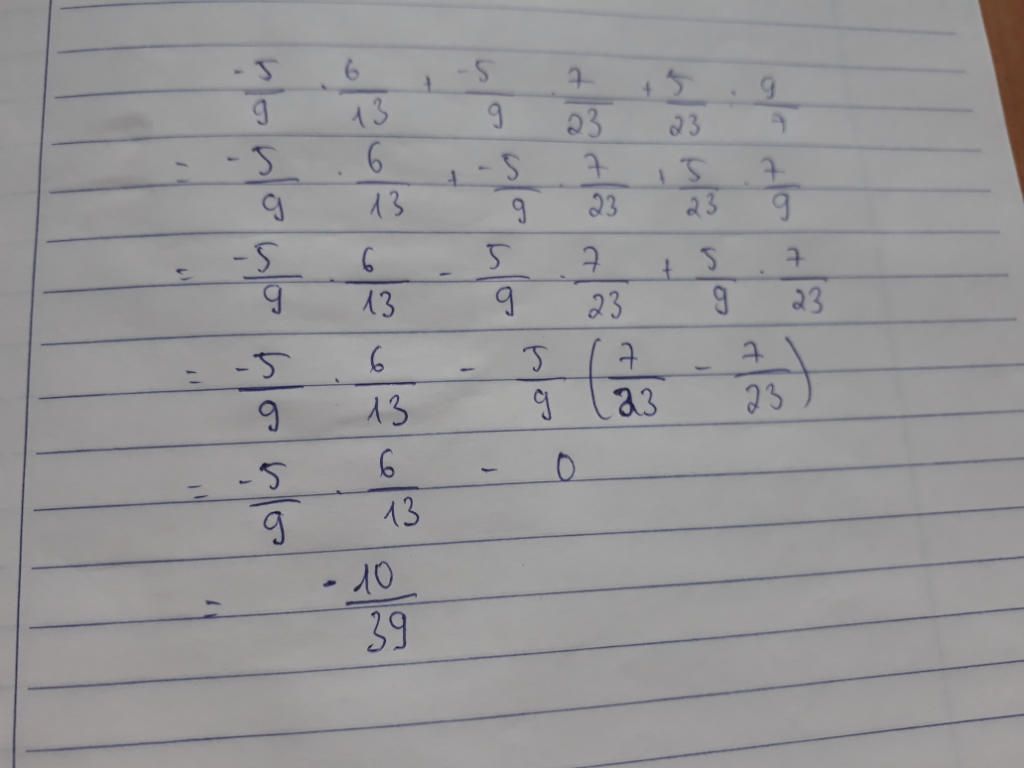 -5/9 . 6/13 + -5/9 . 7/23 + 5/23 : 9/7
= -5/9 . 6/13 + -5/9 . 7/23 + 5/23 . 7/9
= -5/9 . 6/13 - 5/9 . 7/23 + 5/9 . 7/23
= -5/9 . 6/13 - 5/9 (7/23 - 7/23)
= -5/9 . 6/13 - 0
= -10/39